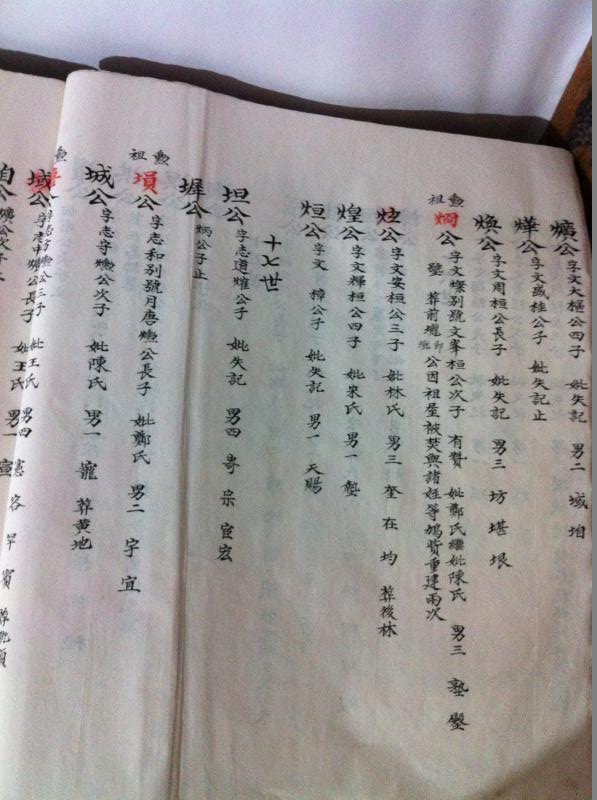 爌公字文大樞公四子 妣失記 男二 域 垍
燁公字文盛桂公子 妣失記止
煥公字文周桓公長子 妣失記 男三 坊 堪 垠
勲祖
燗公字文燦別號文峯桓公次子 有贊 妣鄭氏繼妣陳氏 男三 塾 壂
壁 葬前壠 公因祖屋被焚與諸姪等鳩貲重建兩次
炫公字文安桓公三子 妣林氏 男三 奎 在 均 葬後林
煌公字文輝桓公四子 妣宋氏 男一 墊
烜公字文 樟公子 妣失記 男一 天賜
十七世
坦公字志道熣公子 妣失記 男四 寄 宗 宦 宏
墀公 炳公子止
勲祖
塤公字志和別號月唐爌公長子 妣鄭氏 男二 宇 宜
城公字志守爌公次子 妣陳氏 男一 寵 葬黄地
勲
域公 公三子 妣王氏 男四 憲 容 早 賓
垍公爌公次子